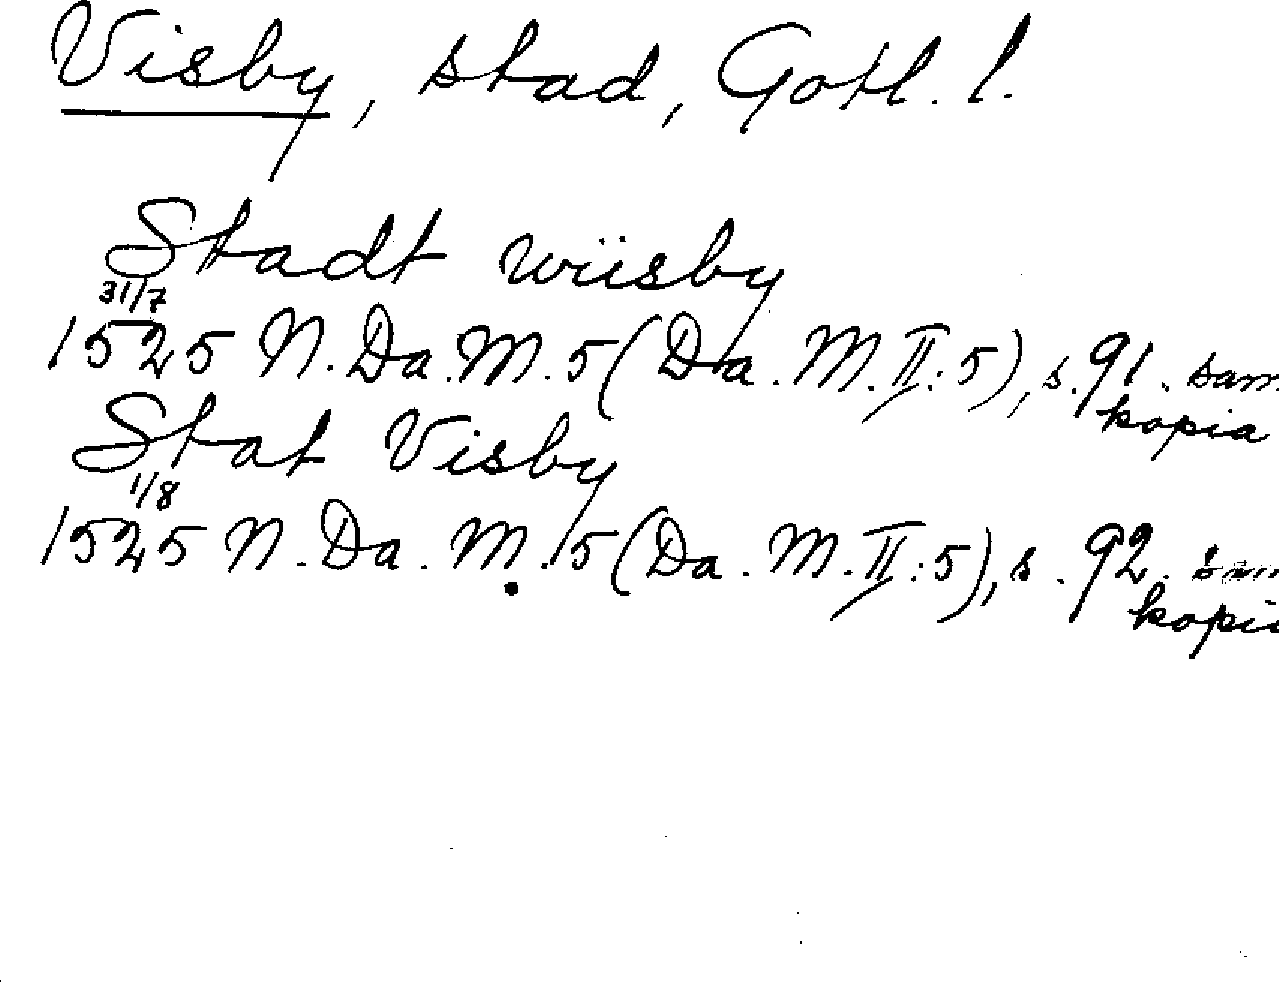 Visby, stad, Gotl. l.
Stadt wiisby
31/7
1525 N. Da. M. 5 (Da. M. II:5), s. 91. sam
kopia
Stat Visby
1/8
1525 N. Da. M. 5 (Da. M. II:5), s. 92. sam
kopia